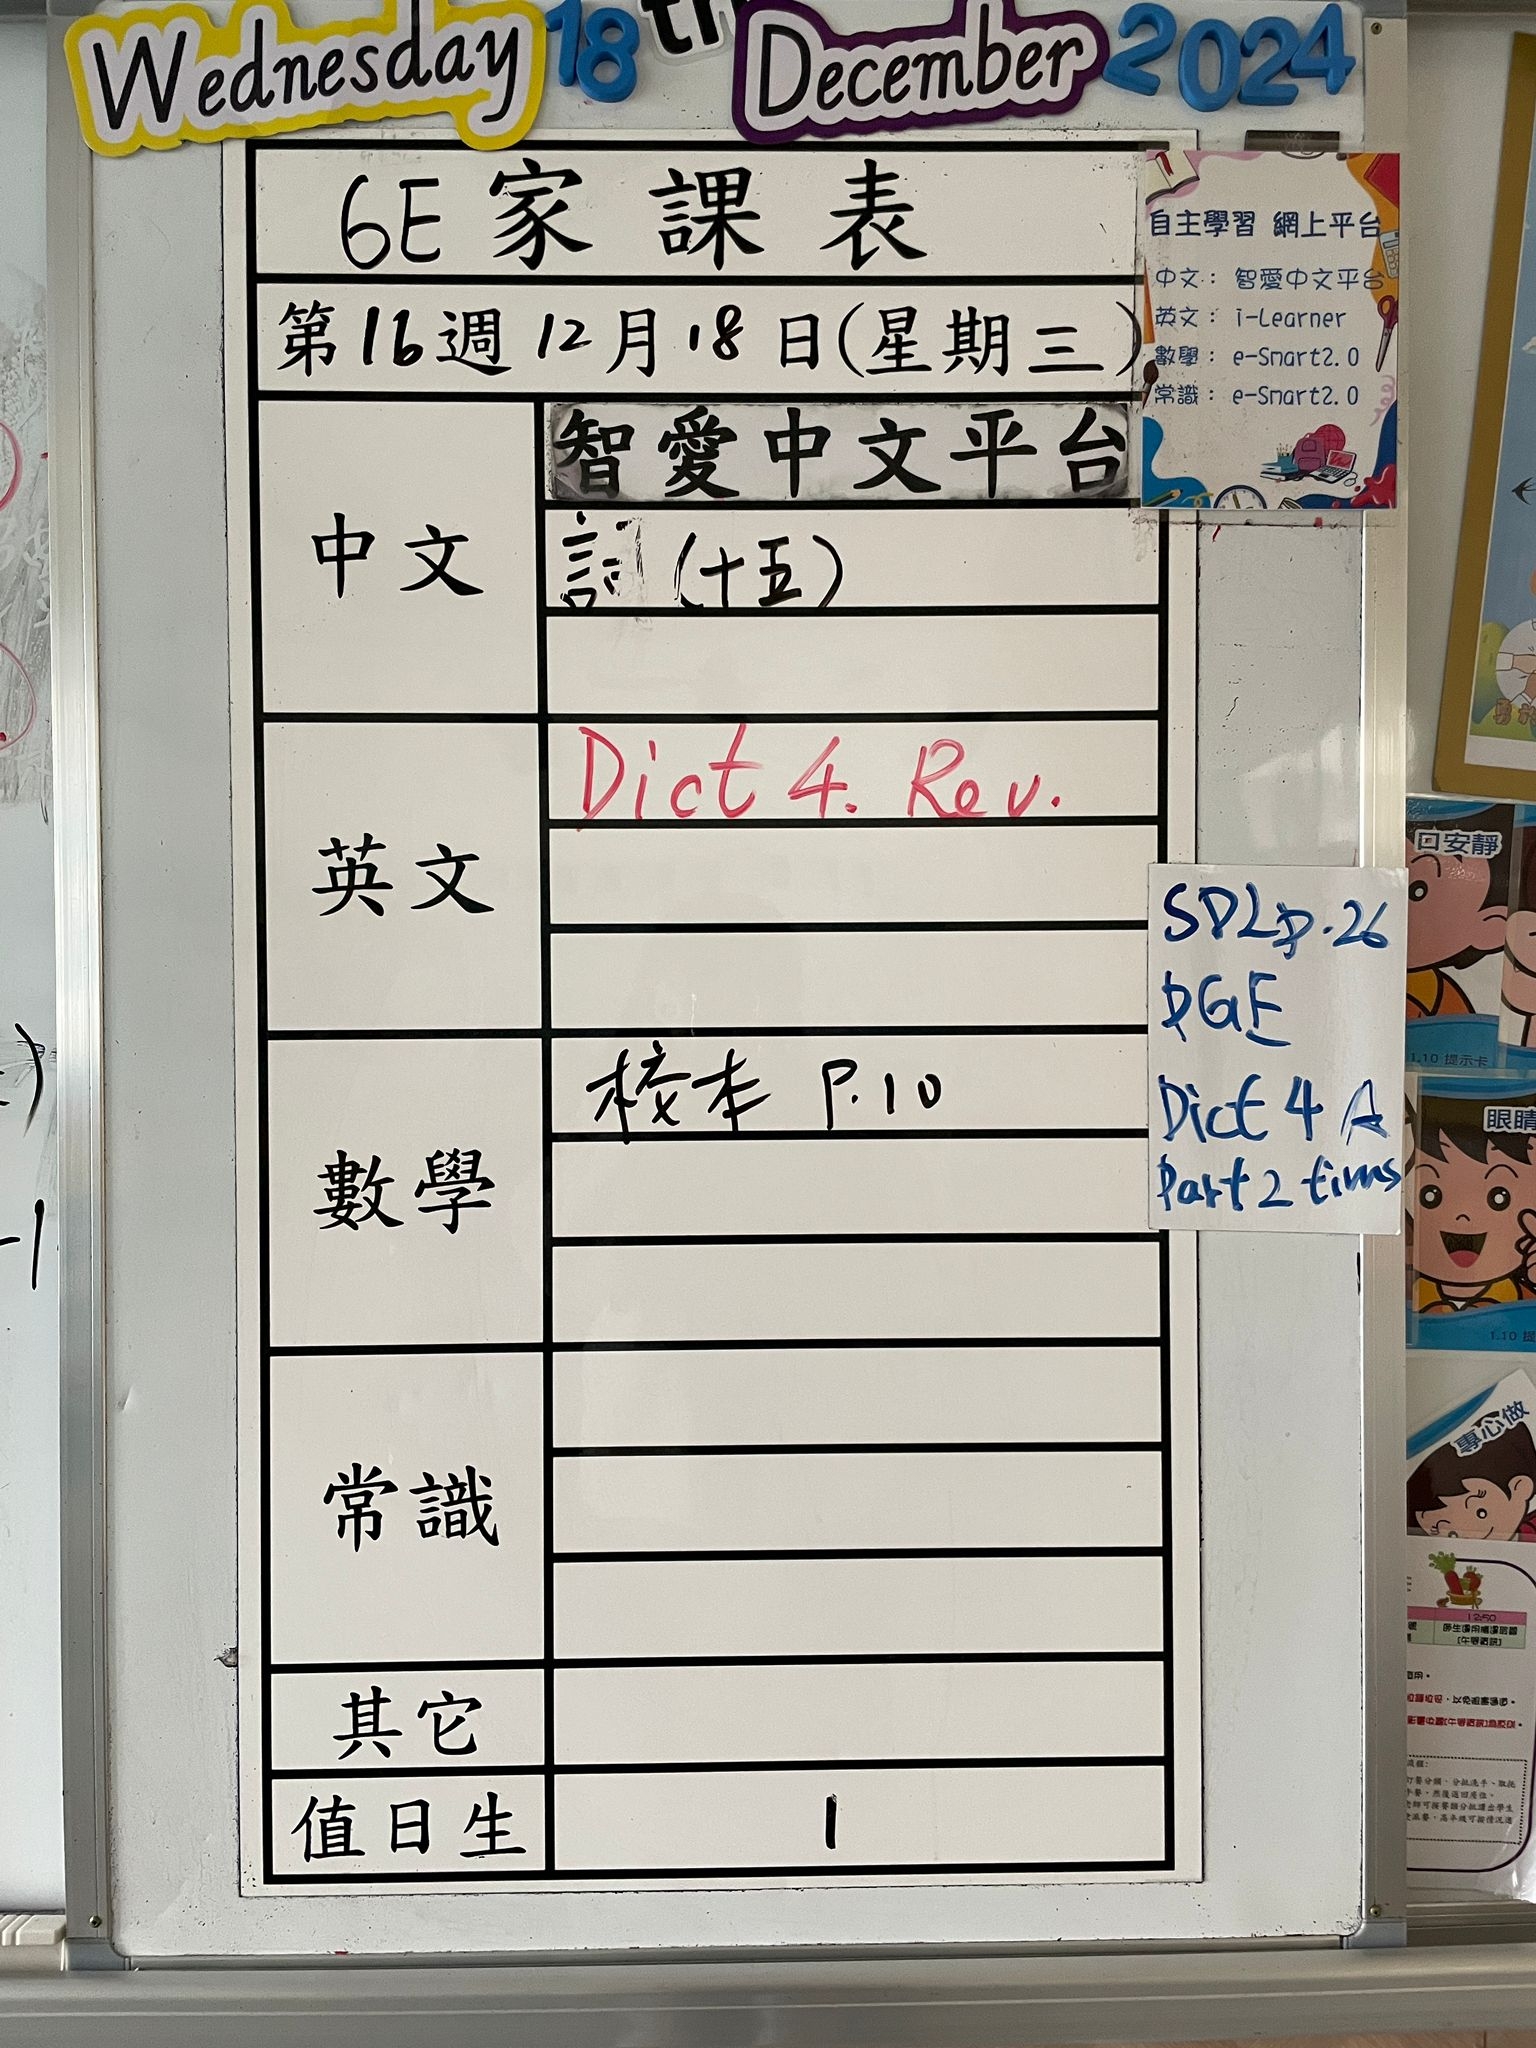 Wednesday 18th December 2024
6E 家課表
第16週12月18日(星期三)
中文
智愛中文平台
詞 (十五)
英文
Dict 4. Rev.
數學
校本 P.10
常識
其它
值日生
1
自主學習 網上平台
中文： 智愛中文平台
英文： i-Learner
數學： e-Smart2.0
常識： e-Smart2.0
SDL p.26
PGE
Dict 4 A
Part 2 tims
口安靜
1.10 提示卡
眼睛
1.10 提
專心做
12:50